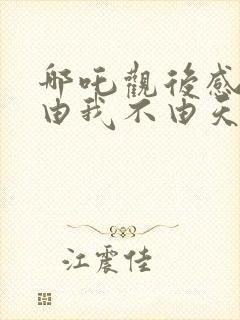 哪吒觀後感
由我不由天
江震佳